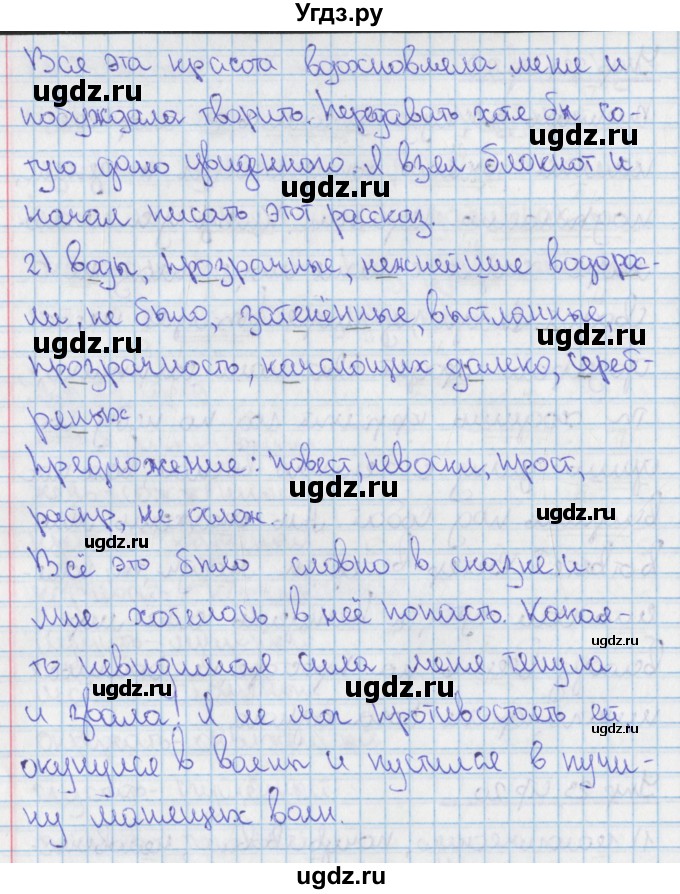 Угдз.ру
Вся эта красота вдохновляла меня и
ugdz.ru
побуждала творить. Передавать хотя бы со-
ugdz.ru
тую долю увиденного. Я взял блокнот и
ugdz.ru
начал писать этот рассказ.
2) воды, прозрачные, нежнейшие водорос-
ugdz.ru
ли, не было, затенённые, выстланные,
ugdz.ru
прозрачность, качающих далеко, сереб-
ряных
Предложение: повест, невоскл, прост,
ugdz.ru
распр, не ослож.
ugdz.ru
ugdz.ru
Всё это было словно в сказке и
мне хотелось в неё попасть. Какая-
ugdz.ru
то невидимая сила меня тянула
ugdz.ru
ugdz.ru
и звала! Я не мог противостоять ей
ugdz.ru
окунулся в волны и пустился в пучи-
ну манящих волн.